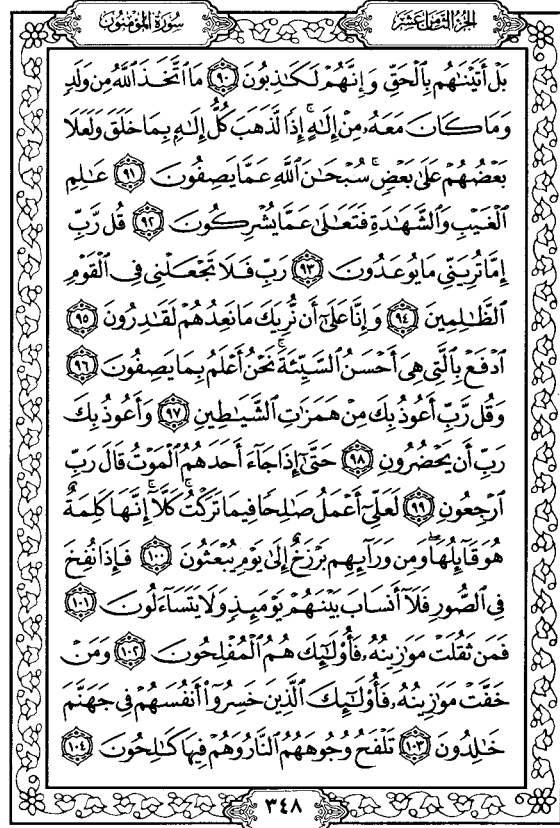 الجزء الثامن عشر
سورة المؤمنون
بَلْ أَتَيْنَٰهُم بِٱلْحَقِّ وَإِنَّهُمْ لَكَٰذِبُونَ ٩٠ مَا ٱتَّخَذَ ٱللَّهُ مِن وَلَدٍ
وَمَا كَانَ مَعَهُۥ مِنْ إِلَٰهٍ ۚ إِذًا لَّذَهَبَ كُلُّ إِلَٰهٍۭ بِمَا خَلَقَ وَلَعَلَا
بَعْضُهُمْ عَلَىٰ بَعْضٍ ۚ سُبْحَٰنَ ٱللَّهِ عَمَّا يَصِفُونَ ٩١ عَٰلِمِ
ٱلْغَيْبِ وَٱلشَّهَٰدَةِ فَتَعَٰلَىٰ عَمَّا يُشْرِكُونَ ٩٢ قُل رَّبِّ
إِمَّا تُرِيَنِّى مَا يُوعَدُونَ ٩٣ رَبِّ فَلَا تَجْعَلْنِى فِى ٱلْقَوْمِ
ٱلظَّٰلِمِينَ ٩٤ وَإِنَّا عَلَىٰٓ أَن نُّرِيَكَ مَا نَعِدُهُمْ لَقَٰدِرُونَ ٩٥
ٱدْفَعْ بِٱلَّتِى هِىَ أَحْسَنُ ٱلسَّيِّئَةَ ۚ نَحْنُ أَعْلَمُ بِمَا يَصِفُونَ ٩٦
وَقُل رَّبِّ أَعُوذُ بِكَ مِنْ هَمَزَٰتِ ٱلشَّيَٰطِينِ ٩٧ وَأَعُوذُ بِكَ
رَبِّ أَن يَحْضُرُونِ ٩٨ حَتَّىٰٓ إِذَا جَآءَ أَحَدَهُمُ ٱلْمَوْتُ قَالَ رَبِّ
ٱرْجِعُونِ ٩٩ لَعَلِّىٓ أَعْمَلُ صَٰلِحًا فِيمَا تَرَكْتُ ۚ كَلَّآ ۚ إِنَّهَا كَلِمَةٌ
هُوَ قَآئِلُهَا ۖ وَمِن وَرَآئِهِم بَرْزَخٌ إِلَىٰ يَوْمِ يُبْعَثُونَ ١٠٠ فَإِذَا نُفِخَ
فِى ٱلصُّورِ فَلَآ أَنسَابَ بَيْنَهُمْ يَوْمَئِذٍ وَلَا يَتَسَآءَلُونَ ١٠١
فَمَن ثَقُلَتْ مَوَٰزِينُهُۥ فَأُو۟لَٰٓئِكَ هُمُ ٱلْمُفْلِحُونَ ١٠٢ وَمَنْ
خَفَّتْ مَوَٰزِينُهُۥ فَأُو۟لَٰٓئِكَ ٱلَّذِينَ خَسِرُوٓا۟ أَنفُسَهُمْ فِى جَهَنَّمَ
خَٰلِدُونَ ١٠٣ تَلْفَحُ وُجُوهَهُمُ ٱلنَّارُ وَهُمْ فِيهَا كَٰلِحُونَ ١٠٤
٣٤٨